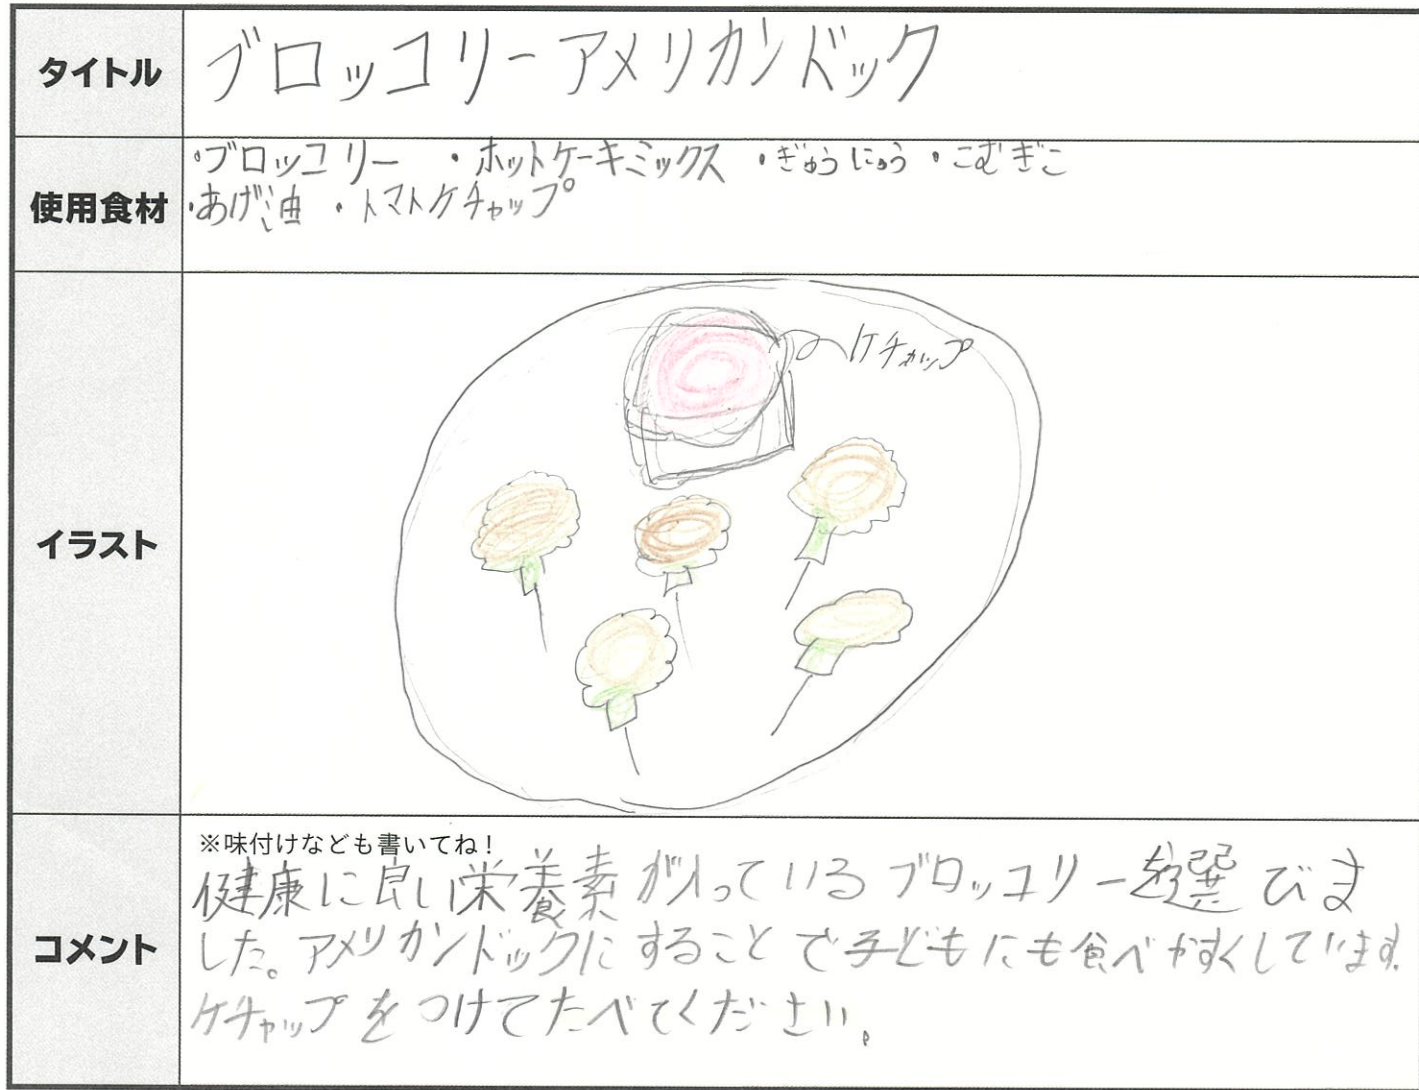 タイトル
ブロッコリーアメリカンドック
使用食材
・ブロッコリー ・ホットケーキミックス ・ぎゅうにゅう ・こむぎこ
・あげ油 ・トマトケチャップ
イラスト
ケチャップ
コメント
※味付けなども書いてね！
健康に良い栄養素が入っているブロッコリーを選びま
した。アメリカンドックにすることで子どもにも食べやすくしています。
ケチャップをつけてたべてください。